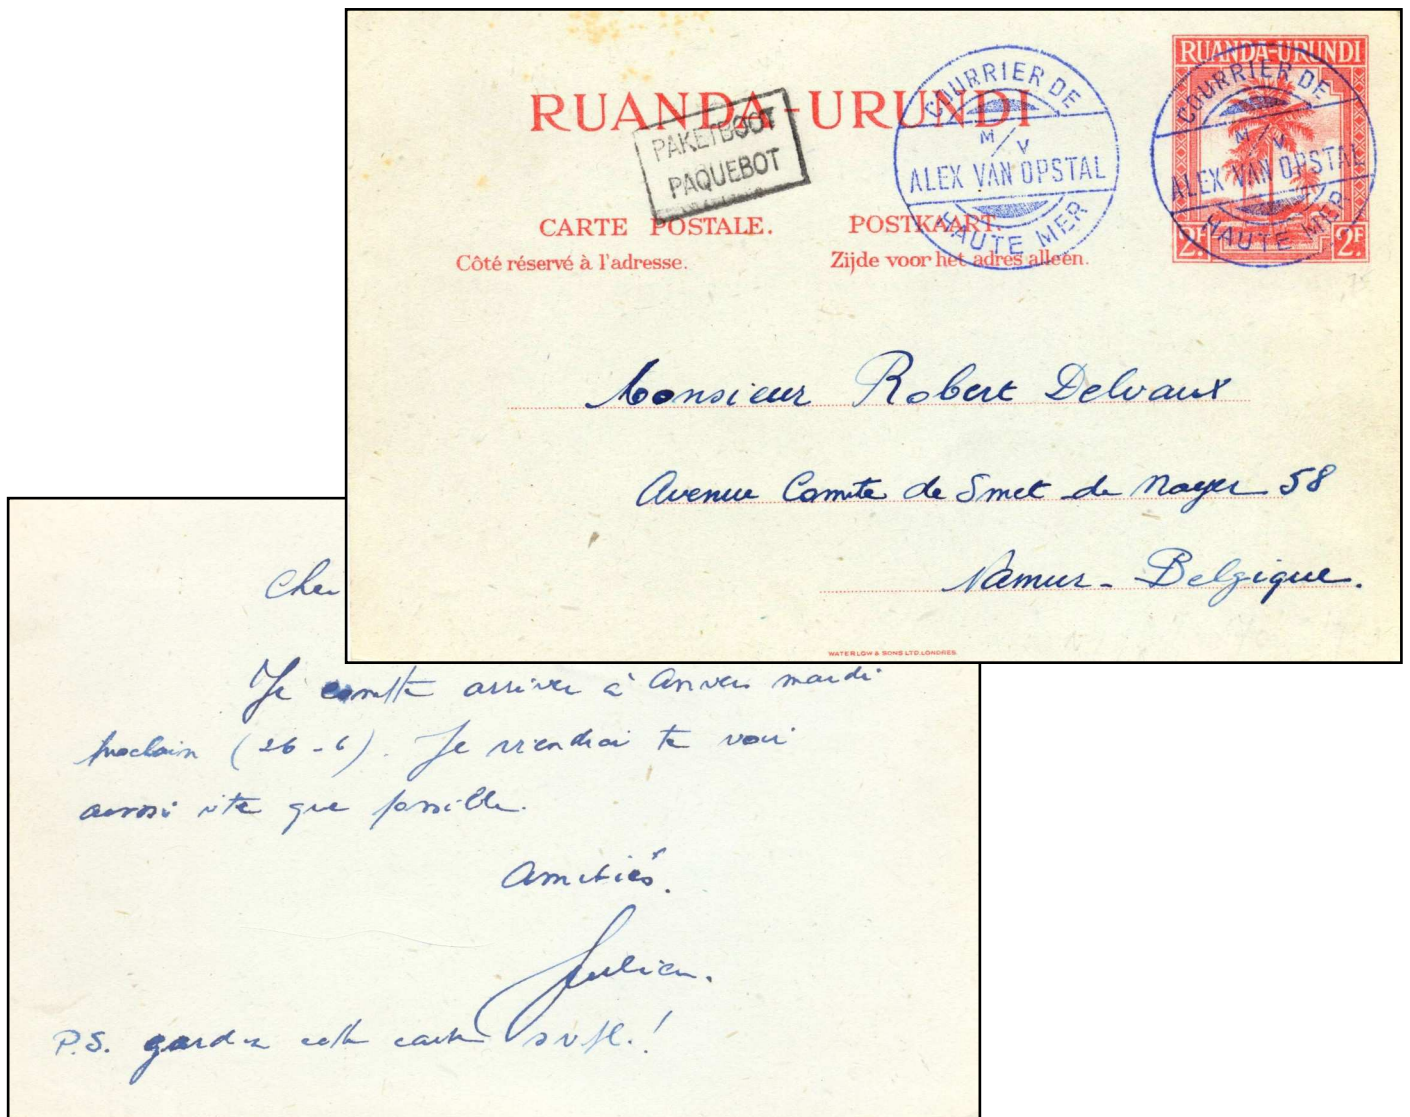 RUANDA-URUNDI
PAKETBOOT
PAQUEBOT
COURRIER DE
M/V
ALEX VAN OPSTAL
HAUTE MER
RUANDA-URUNDI
COURRIER DE
M/V
ALEX VAN OPSTAL
HAUTE MER
2F 2F
CARTE POSTALE. POSTKAART.
Côté réservé à l'adresse. Zijde voor het adres alleen.
Monsieur Robert Delvaux
Avenue Comte de Smet de Nayer 58
Namur - Belgique.
WATERLOW & SONS LTD. LONDRES.
Cher
Je compte arriver à Anvers mardi
prochain (26-6). Je viendrai te voir
aussi vite que possible.
Amitiés.
Julien.
P.S. gardez cette carte svpl.!